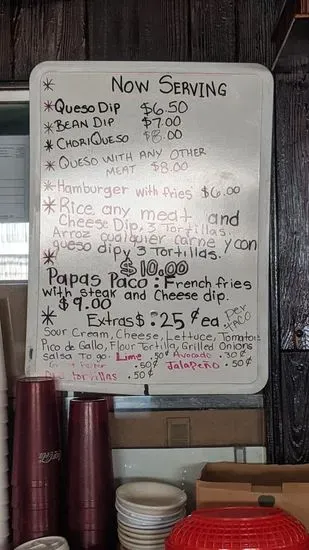 * Now Serving *
* Queso Dip $6.50
* Bean Dip $7.00
* ChoriQueso $8.00
* Queso with any other
meat $8.00
* Hamburger with fries $6.00
* Rice, any meat, and
Cheese Dip, 3 Tortillas.
Arroz cualquier carne y con
queso dip y 3 Tortillas.
* $10.00
Papas Paco: French fries
with steak and Cheese dip.
$9.00
* Extras $: 25¢ ea. per
taco
Sour Cream, Cheese, Lettuce, Tomatoes
Pico de Gallo, Flour Tortilla, Grilled Onions
Salsa To go. Lime .50¢ Avocado .30¢
.50¢ Jalapeño .50¢
tortillas .50¢